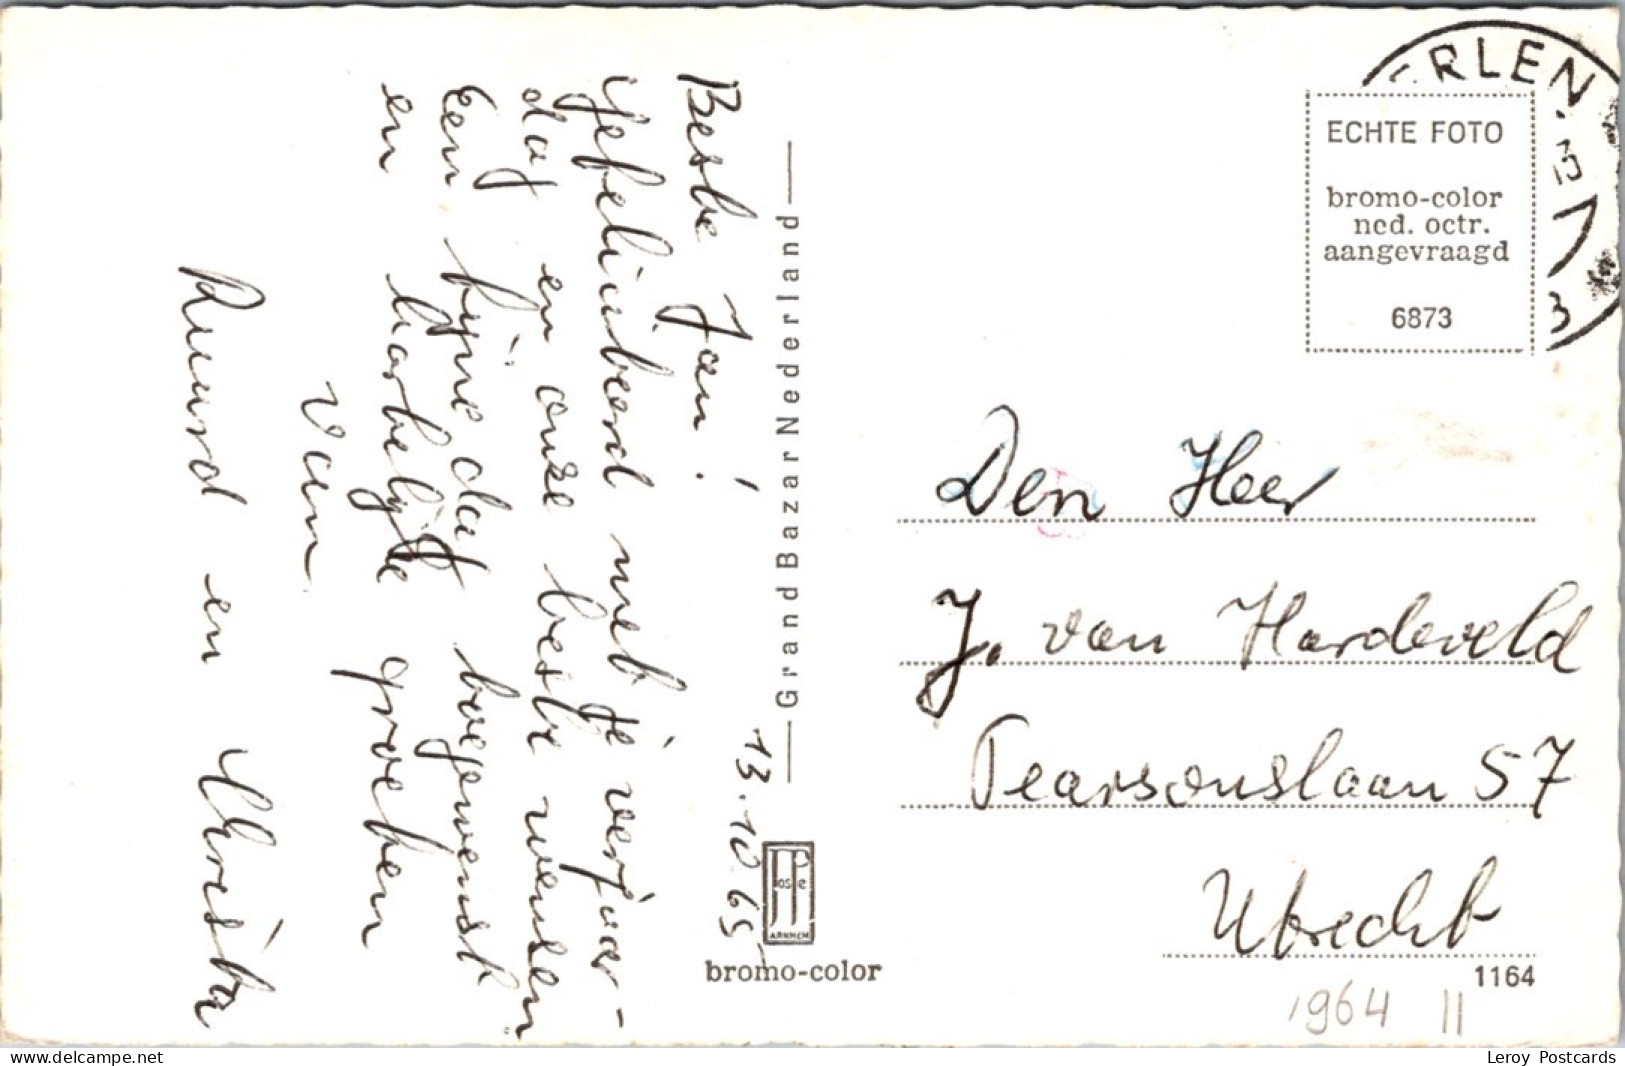 Beste Jan!
Gefeliciteerd met je verjaar-
dag en onze beste wensen
Een fijne dag toegewenst
en hartelijke groeten
van
Ruurd en Christa
13.10.65
Grand Bazar Nederland
JosPe
ARNHEM
bromo-color
ERLEN
ECHTE FOTO
bromo-color
ned. octr.
aangevraagd
6873
Den Heer
J. van Hardeveld
Pearsonslaan 57
Utrecht
1164
1964 II
Leroy Postcards